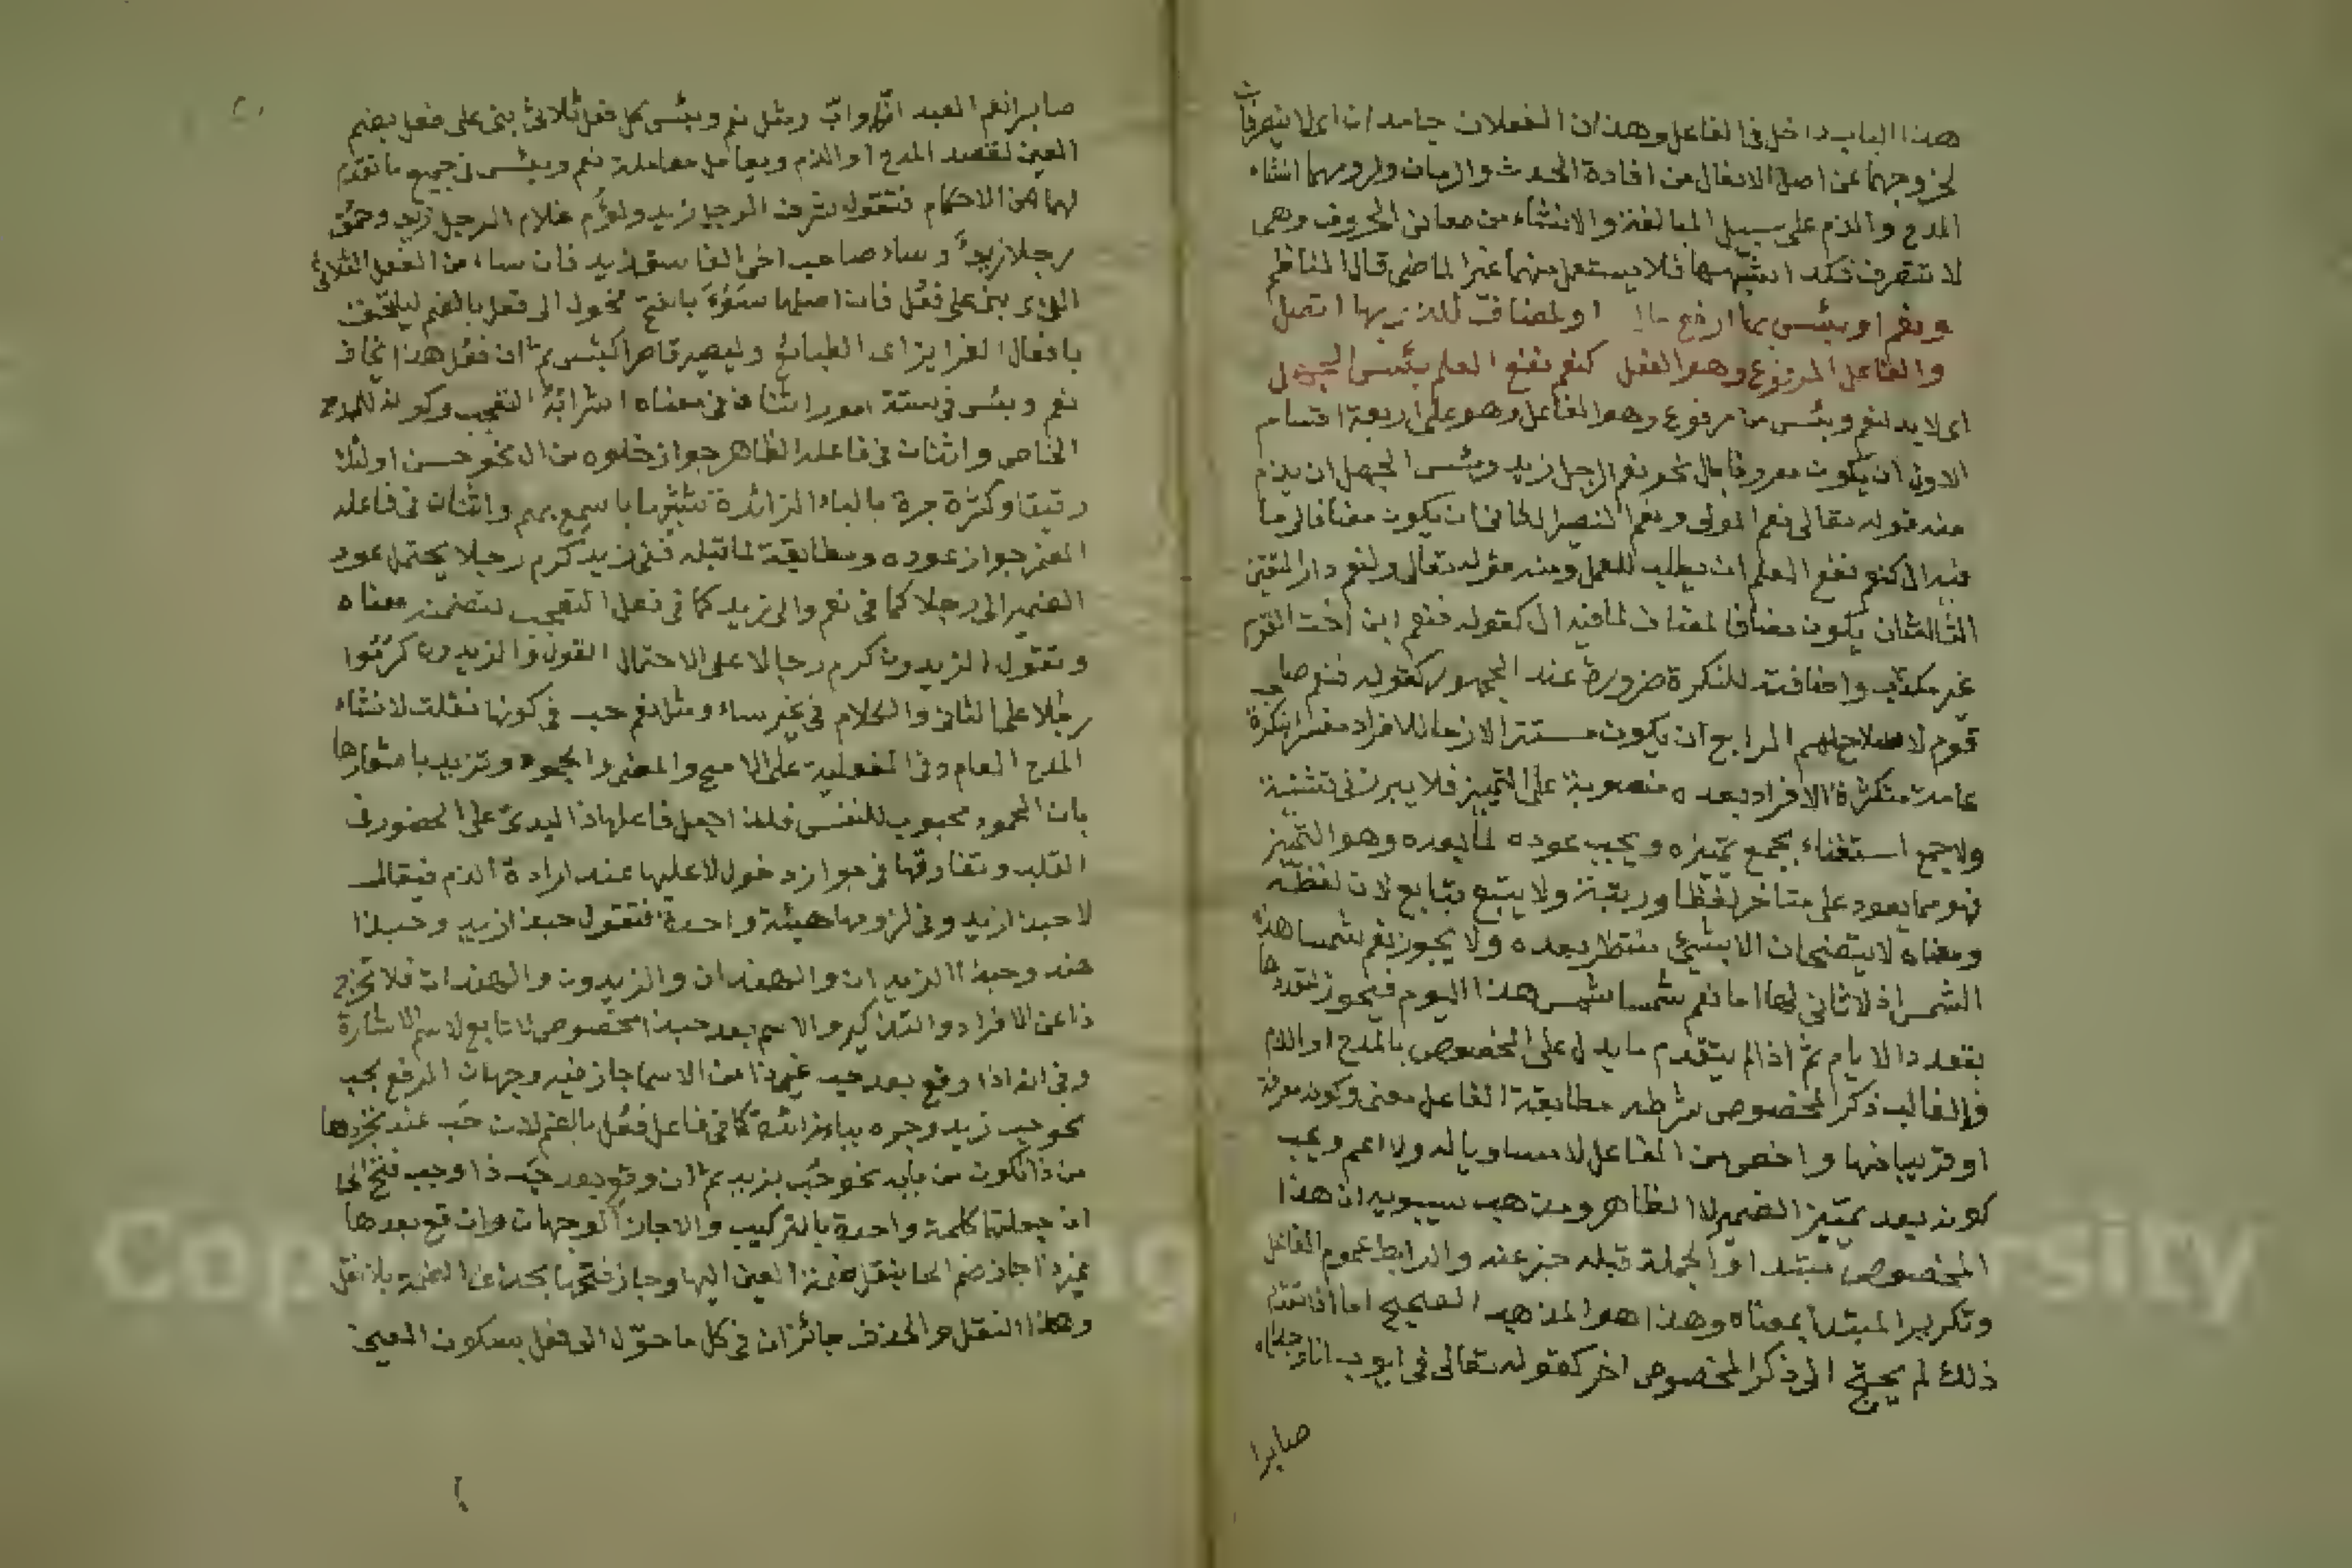 هذا الباب داخل في الفاعل وهذان الفعلان جامدان اى لا يتصرفان
لخروجهما عن اصل الافعال من افادة الحدث والزمان ولزومهما انشاء
المدح والذم على سبيل المبالغة والانشاء من معاني الحروف وهى
لا تتصرف فكذا اشبهها فلا يستعمل منهما غير الماضى قال الناظم
ونعم او بئس بما ارفع او لمضاف للذ بها اتصل
والفاعل المرفوع وهو الفعل كنعم نفع العلم بئس الجهل
اى لا بد لنعم وبئس من مرفوع وهو الفاعل وهو على اربعة اقسام
الاول ان يكون معرفا بال نحو نعم الرجل زيد وبئس الجهل ان يذم
منه قوله تعالى نعم المولى ونعم النصير الثانى ان يكون مضافا الى ما
فيه ال كنعم نفع العلم ان يطلب للعمل ومنه قوله تعالى ولنعم دار المتقين
الثالث ان يكون مضافا لمضاف لما فيه ال كقوله فنعم ابن اخت القوم
غير مكذب واضافته للنكرة ضرورة عند الجمهور كقوله فنعم صاحب
قوم لا سلاح لهم الرابع ان يكون مستترا لازما للافراد مفسرا بنكرة
عامة متكثرة الافراد بعده منصوبة على التمييز فلا يبرز في تثنية
ولا جمع استغناء بجمع تمييزه ويجب عوده لما بعده وهو التمييز
فهو مما يعود على متاخر لفظا ورتبة ولا يتبع بتابع لان لفظه
ومعناه لا يتضحان الا بشئ منتظر بعده ولا يجوز نعم شمسا هذه
الشمس اذ لا ثانى لها اما نعم شمسا شمس هذا اليوم فيجوز لتعددها
بتعدد الايام ثم اذا لم يتقدم ما يدل على المخصوص بالمدح او الذم
فالغالب ذكر المخصوص شرطه مطابقة الفاعل معنى وكونه معرفة
او قريبا منها واخص من الفاعل لا مساويا له ولا اعم ويجب
كونه بعد تمييز الضمير لا الظاهر ومذهب سيبويه ان هذا
المخصوص مبتدا والجملة قبله خبر عنه والرابط عموم الفاعل
وتكرير المبتدا بمعناه وهذا هو المذهب الصحيح اما اذا تقدم
ذلك لم يحتج الى ذكر المخصوص اخر كقوله تعالى في ايوب انا وجدناه
صابرا
صابرا نعم العبد انه اواب ومثل نعم وبئس كل فعل ثلاثى بنى على فعل بضم
العين لقصد المدح او الذم ويعامل معاملة نعم وبئس في جميع ما تقدم
لهما من الاحكام فتقول شرف الرجل زيد ولؤم غلام الرجل زيد وحمق
رجلا زيد وساء صاحب اخى الفاسق زيد فان ساء من الفعل الثلاثى
الذى بنى على فعل فان اصلها سوء بالفتح فحول الى فعل بالضم ليلتحق
بافعال الغرايز اى الطبائع وليصير قاصرا كبئس ثم ان فعل هذا يخالف
نعم وبئس في ستة امور اثنان في معناه اشرابه التعجب وكونه للمدح
الخاص واثنان في فاعله الظاهر جواز خلوه من ال نحو حسن اولئك
رفيقا وكثرة جره بالباء الزائدة تشبيها باسمع بهم واثنان في فاعله
المضمر جواز عوده ومطابقته لما قبله ففى زيد كرم رجلا يحتمل عود
الضمير الى رجلا كما في نعم والى زيد كما في فعل التعجب لتضمنه معناه
وتقول الزيدون كرم رجالا على الاحتمال الاول والزيدون كرموا
رجالا على الثانى والكلام في غير ساء ومثل نعم حب في كونها نقلت لانشاء
المدح العام وفي الفعلية على الاصح والمضى والجمود وتزيد باشعارها
بان المحمود محبوب للنفس فلذا جعل فاعلها ذا ليدل على الحضور في
القلب وتفارقها في جواز دخول لا عليها عند ارادة الذم فيقال
لا حبذا زيد وفي لزومها هيئة واحدة فتقول حبذا زيد وحبذا
هند وحبذا الزيدان والهندان والزيدون والهندات فلا تخرج
ذا عن الافراد والتذكير والاسم بعد حبذا مخصوص لا تابع لاسم الاشارة
وفي انه اذا وقع بعد حب غير ذا من الاسما جاز فيه وجهان الرفع بحب
نحو حب زيد وجره بباء زائدة كما في فاعل فعل بالضم لان حب عند تجردها
من ذا تكون من بابه نحو حب بزيد ثم ان وقع بعد حب ذا وجب فتح الحا
ان جعلتها كلمة واحدة بالتركيب والا جاز الوجهان وان وقع بعدها
غير ذا جاز ضم الحا بنقل ضمة العين اليها وجاز فتحها بحذف الضمة بلا نقل
وهذا النقل والحذف جائزان في كل ما حول الى فعل بسكون العين
Copyright © King Saud University